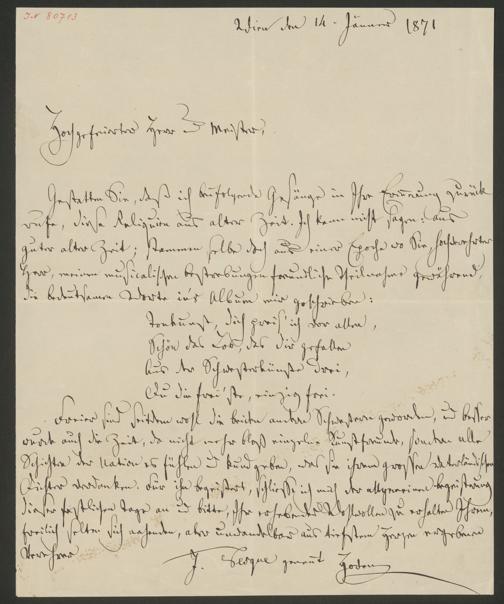 I.N 80713
Wien den 14. Jänner 1871
Hochgefeierter Herr und Meister,
Gestatten Sie, daß ich beifolgende Gesänge in Ihre Erinnerung zurück
rufe, diese Reliquien aus alter Zeit. Ich kann nicht sagen: aus
guter alter Zeit; stammen selbe doch aus einer Epoche wo Sie, hochverehrter
Herr, meinen musicalischen Bestrebungen freundliche Theilnahme gewährend,
die bedeutsamen Worte in's Album mir geschrieben:
Tonkunst, dich preis' ich vor allen,
Schön das Los, das dir gefallen
Aus der Schwesterkünste drei,
Du die frei'ste, einzig frei.
Freier sind seitdem wohl die beiden andern Schwestern geworden, und besser
wurde auch die Zeit, da nicht mehr bloß einzelne Kunstfreunde, sondern alle
Schichten der Nation es fühlen und kundgeben, was sie ihrem großen vaterländischen
Dichter verdanken. Für ihn begeistert, schließe ich mich der allgemeinen Begeisterung
dieser festlichen Tage an und bitte, Ihr Wohlwollen zu erhalten Ihrem,
freilich selten sich nahenden, aber unwandelbar aus tiefstem Herzen ergebenen
Verehrer
J. Vesque genannt Hoven